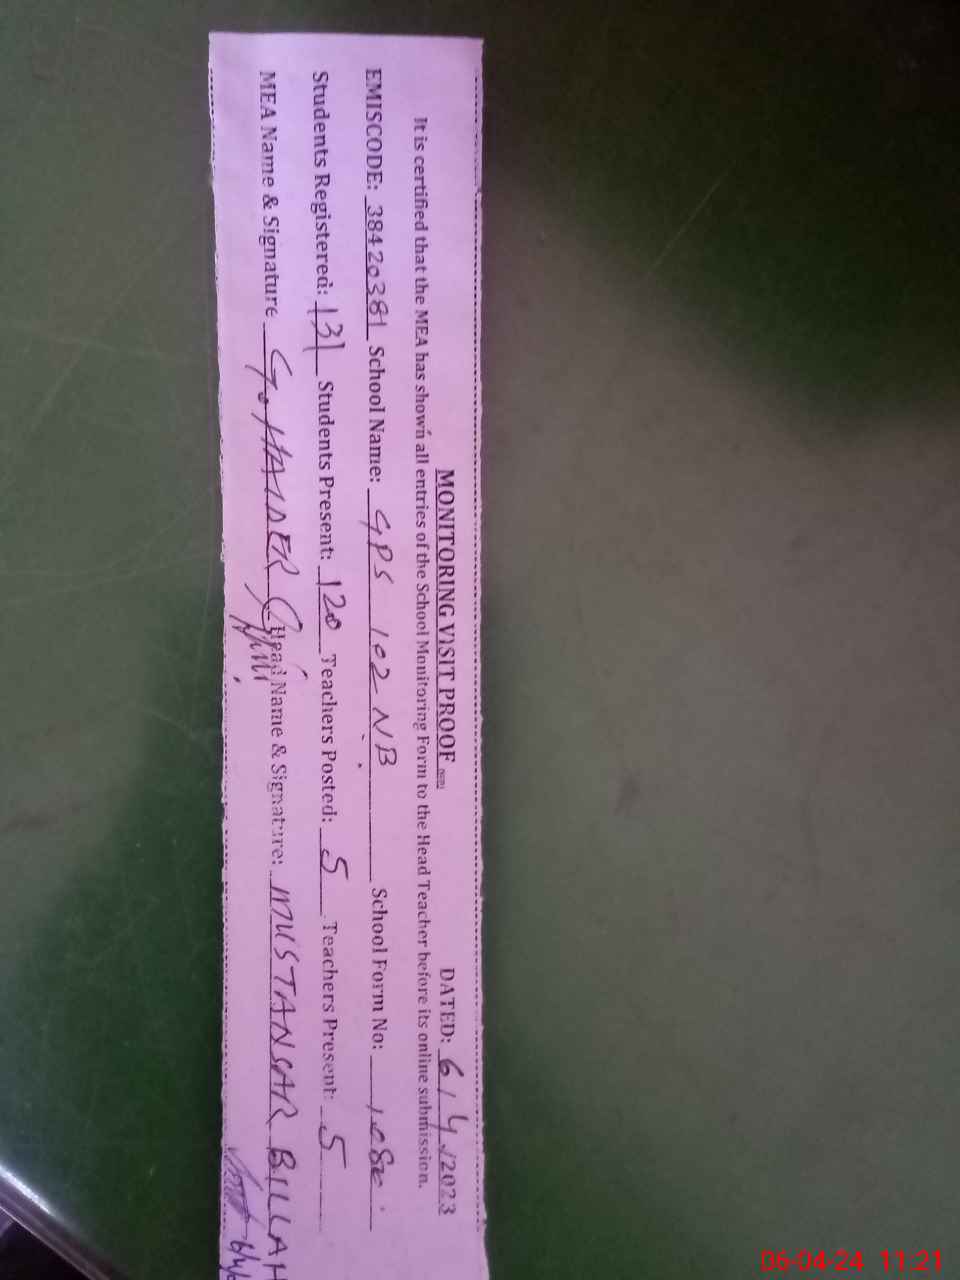 MONITORING VISIT PROOF DATED: 6/4/2023
It is certified that the MEA has shown all entries of the School Monitoring Form to the Head Teacher before its online submission.
EMISCODE: 38420381 School Name: GPS 102 NB School Form No: 1080
Students Registered: 131 Students Present: 120 Teachers Posted: 5 Teachers Present: 5
MEA Name & Signature G. HAIDER Head Name & Signature: MUSTANSAR BILLAH
06-04-24 11:21